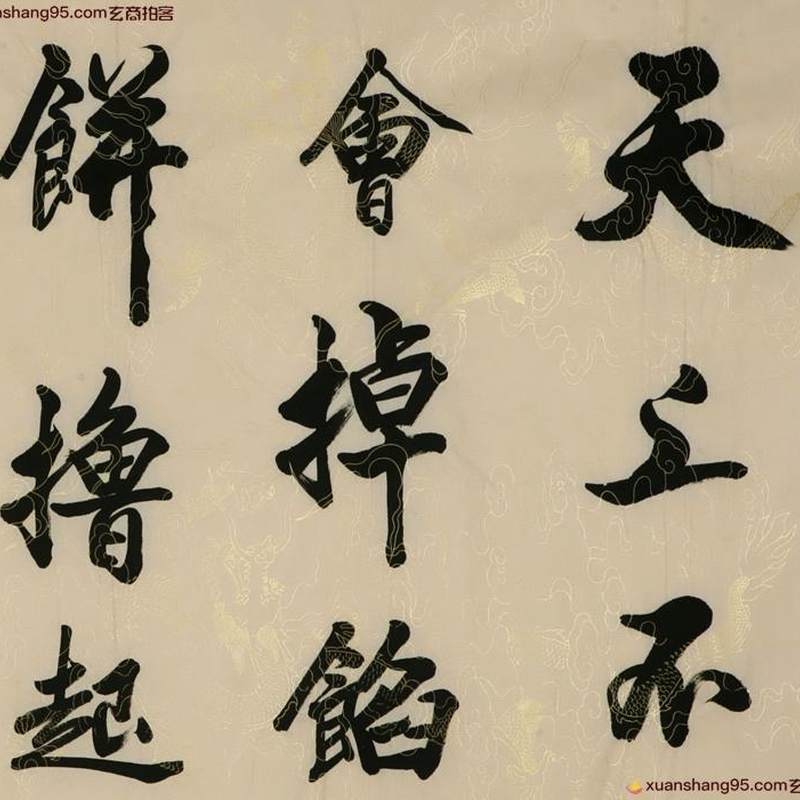 天上不
會掉餡
餅擼起
xuanshang95.com玄商拍客
xuanshang95.com玄